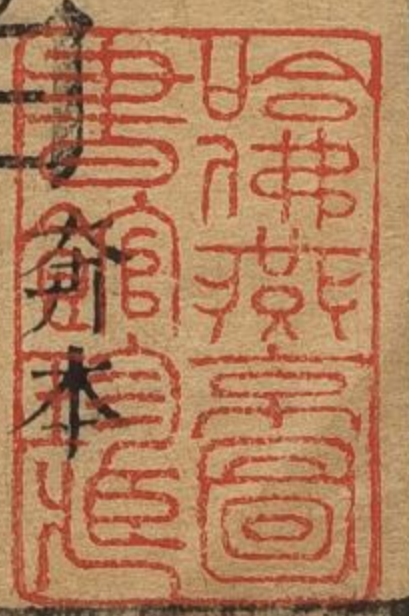 哈佛燕京圖
書館珍藏
本